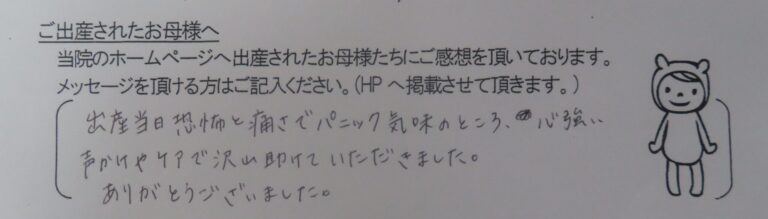 ご出産されたお母様へ
当院のホームページへ出産されたお母様たちにご感想を頂いております。
メッセージを頂ける方はご記入ください。(HPへ掲載させて頂きます。)
出産当日恐怖と痛さでパニック気味のところ、心強い
声かけやケアで沢山助けていただきました。
ありがとうございました。